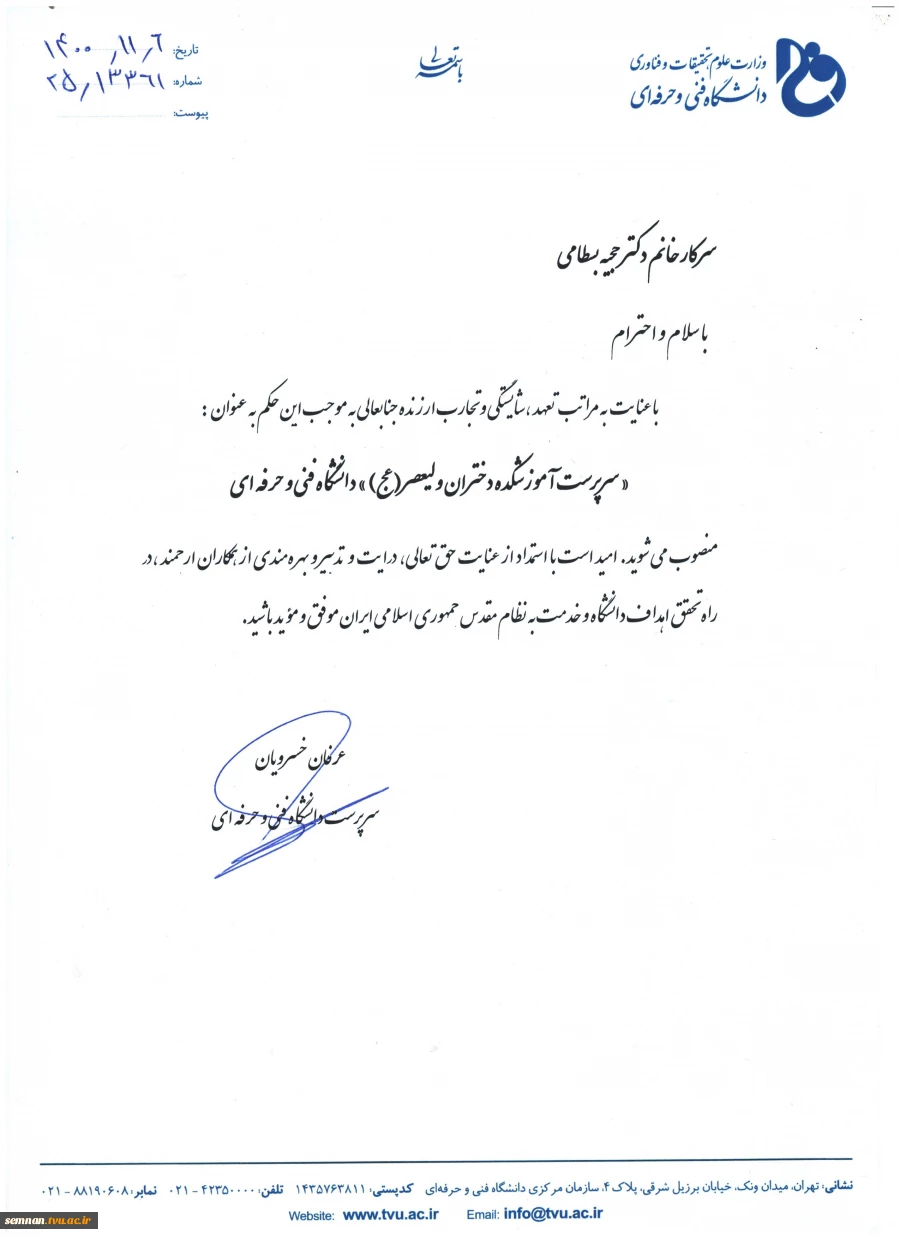 وزارت علوم تحقیقات و فناوری
دانشگاه فنی و حرفه‌ای
باسمه تعالی
تاریخ: ۱۴۰۰/۱۱/۶
شماره: ۲۵/۱۳۳۶۱
پیوست:
سرکار خانم دکتر حجیه بسطامی
با سلام و احترام
با عنایت به مراتب تعهد، شایستگی و تجارب ارزنده جنابعالی به موجب این حکم به عنوان:
«سرپرست آموزشکده دختران ولیعصر(عج)» دانشگاه فنی و حرفه ای
منصوب می شوید. امید است با استمداد از عنایت حق تعالی، درایت و تدبیر و بهره مندی از همکاران ارجمند، در
راه تحقق اهداف دانشگاه و خدمت به نظام مقدس جمهوری اسلامی ایران موفق و مؤید باشید.
عرفان خسرویان
سرپرست دانشگاه فنی و حرفه ای
نشانی: تهران، میدان ونک، خیابان برزیل شرقی، پلاک ۴، سازمان مرکزی دانشگاه فنی و حرفه‌ای کدپستی: ۱۴۳۵۷۶۳۸۱۱ تلفن: ۴۲۳۵۰۰۰۰ - ۰۲۱ نمابر: ۸۸۱۹۰۶۰۸ - ۰۲۱
Website: www.tvu.ac.ir Email: info@tvu.ac.ir
semnan.tvu.ac.ir